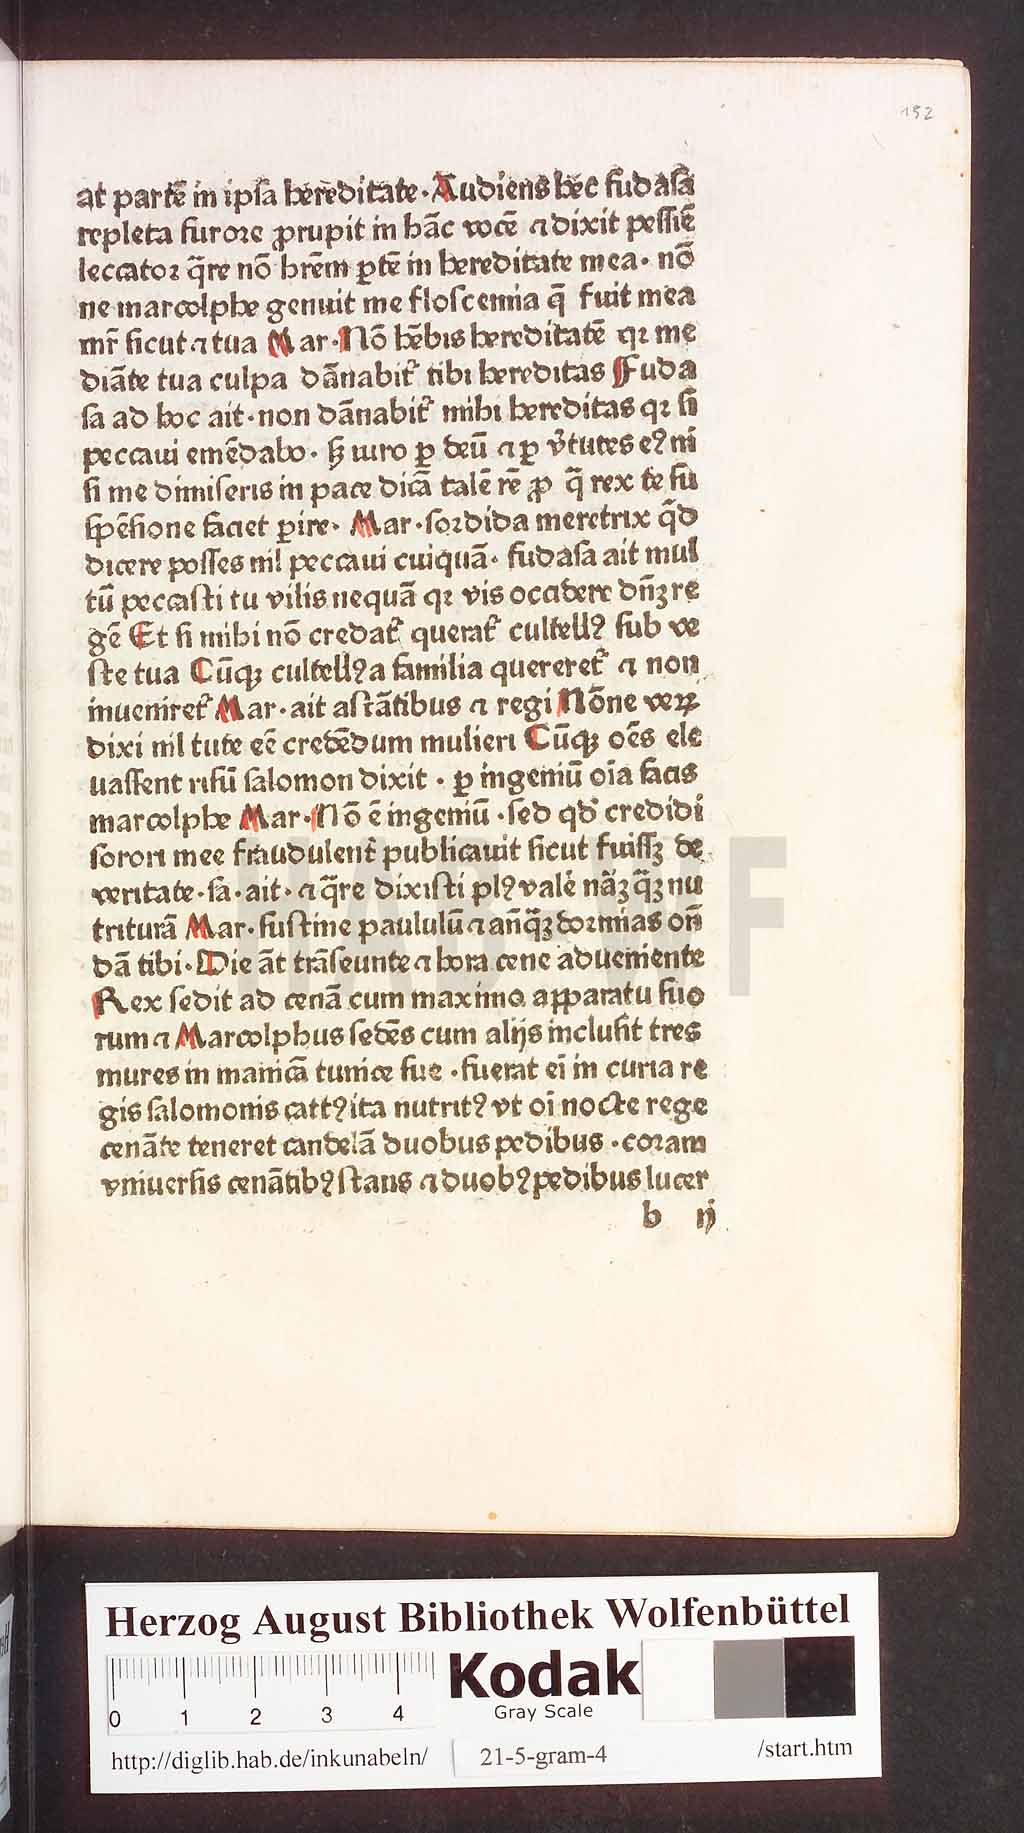 152
at partē in ipſa hereditate · Audiens hec fudaſa
repleta furore ꝓrupit in hāc vocē ⁊ dixit peſſiē
leccator q̄re nō hrēm ꝑtē in hereditate mea · nō
ne marcolphe genuit me floſcemia q̄ fuit mea
mr̄ ſicut ⁊ tua Mar · Nō hēbis hereditatē qꝛ me
diāte tua culpa dānabit᷑ tibi hereditas Fuda
ſa ad hoc ait · non dānabit᷑ mihi hereditas qꝛ ſi
peccaui emēdabo · ſꝫ iuro ꝑ deū ⁊ ꝑ v̄tutes eꝰ ni
ſi me dimiſeris in pace dicā talē rē ꝓ q̄ rex te ſu
ſpēſione faciet ꝑire · Mar · ſordida meretrix q̄d
dicere poſſes nil peccaui cuiquā · fudaſa ait mul
tū peccaſti tu vilis nequā qꝛ vis occidere dn̄ꝫ re
gē Et ſi mihi nō credat᷑ querat᷑ cultellꝰ ſub ve
ſte tua Cūqꝫ cultellꝰ a familia quereret᷑ ⁊ non
inueniret᷑ Mar · ait aſtātibus ⁊ regi Nōne veꝝ
dixi nil tute eē credēdum mulieri Cūqꝫ oēs ele
uaſſent riſū ſalomon dixit · ꝑ ingeniū oīa facis
marcolphe Mar · Nō ē ingeniū · ſed qd̓ credidi
ſorori mee fraudulent᷑ publicauit ſicut fuiſſꝫ de
veritate · ſa · ait · ⁊ q̄re dixiſti plꝰ valē nāꝫ q̄ꝫ nu
triturā Mar · ſuſtine paululū ⁊ an̄q̄ꝫ dormias on̄
dā tibi · Die āt trāſeunte ⁊ hora cene adueniente
Rex ſedit ad cenā cum maximo apparatu ſuo
rum ⁊ Marcolphus ſedēs cum alijs incluſit tres
mures in manicā tunice ſue · fuerat eī in curia re
gis ſalomonis cattꝰ ita nutritꝰ vt oī nocte rege
cenāte teneret candelā duobus pedibus · coram
vniuerſis cenātibꝰ ſtans ⁊ duobꝰ pedibus lucer
b ij
HAB WF
Herzog August Bibliothek Wolfenbüttel
0 1 2 3 4
Kodak
Gray Scale
http://diglib.hab.de/inkunabeln/ 21-5-gram-4 /start.htm